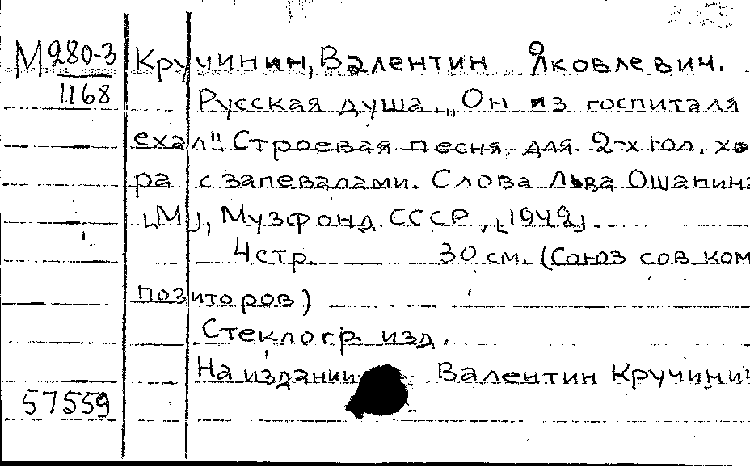 М 280-3
1168
Кручинин, Валентин Яковлевич.
Русская душа. „Он из госпиталя
ехал". Строевая песня для 2-х гол. хо
ра с запевалами. Слова Льва Ошанина
[М], Музфонд СССР, [1942]
4 стр. 30 см. (Союз сов. ком
позиторов)
Стеклогр. изд.
На издании Валентин Кручинин
57559